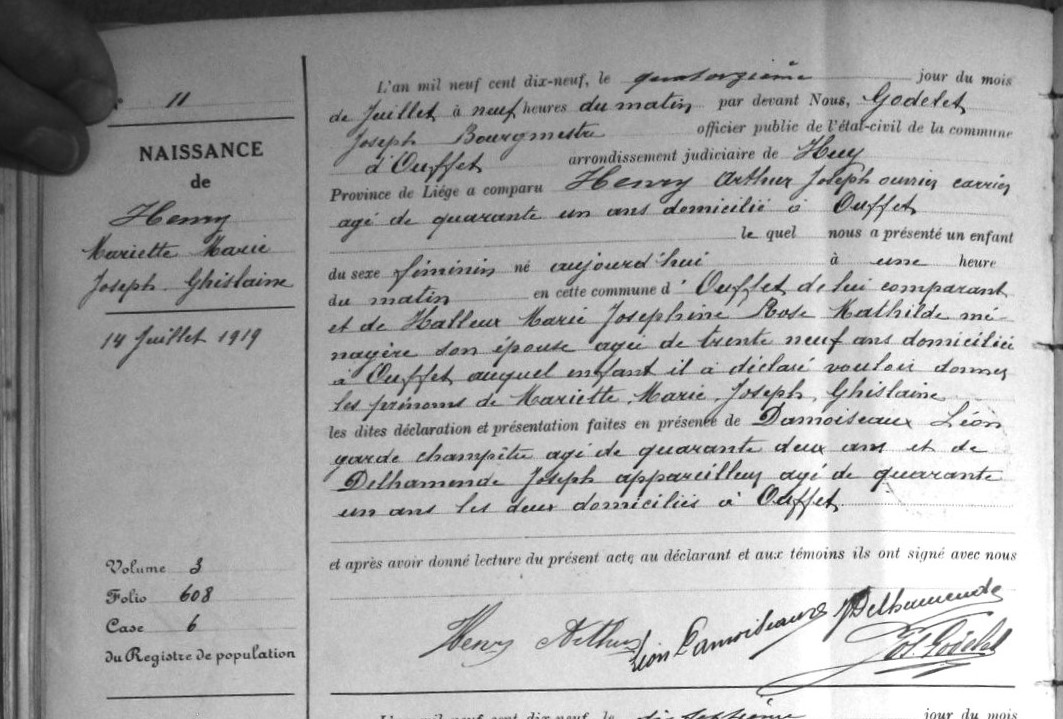 N° 11
NAISSANCE
de
Henry
Mariette Marie
Joseph Ghislaine
14 Juillet 1919
Volume 3
Folio 608
Case 6
du Registre de population
L'an mil neuf cent dix-neuf, le quatorzième jour du mois
de Juillet à neuf heures du matin par devant Nous, Godelet
Joseph Bourgmestre officier public de l'état-civil de la commune
d'Ouffet arrondissement judiciaire de Huy
Province de Liége a comparu Henry Arthur Joseph ouvrier carrier
agé de quarante un ans domicilié à Ouffet
le quel nous a présenté un enfant
du sexe féminin né aujourd'hui à une heure
du matin en cette commune d'Ouffet de lui comparant
et de Halleux Marie Josephine Rose Mathilde mé-
nagère son épouse agée de trente neuf ans domiciliée
à Ouffet auquel enfant il a déclaré vouloir donner
les prénoms de Mariette, Marie, Joseph, Ghislaine
les dites déclaration et présentation faites en présence de Damoiseaux Léon
garde champêtre agé de quarante deux ans et de
Delhamende Joseph appareilleur agé de quarante
un ans les deux domiciliés à Ouffet
et après avoir donné lecture du présent acte au déclarant et aux témoins ils ont signé avec nous
Henry Arthur Léon Damoiseaux J Delhamende
Jos. Godelet
L'an mil neuf cent dix-neuf, le dix-septième jour du mois